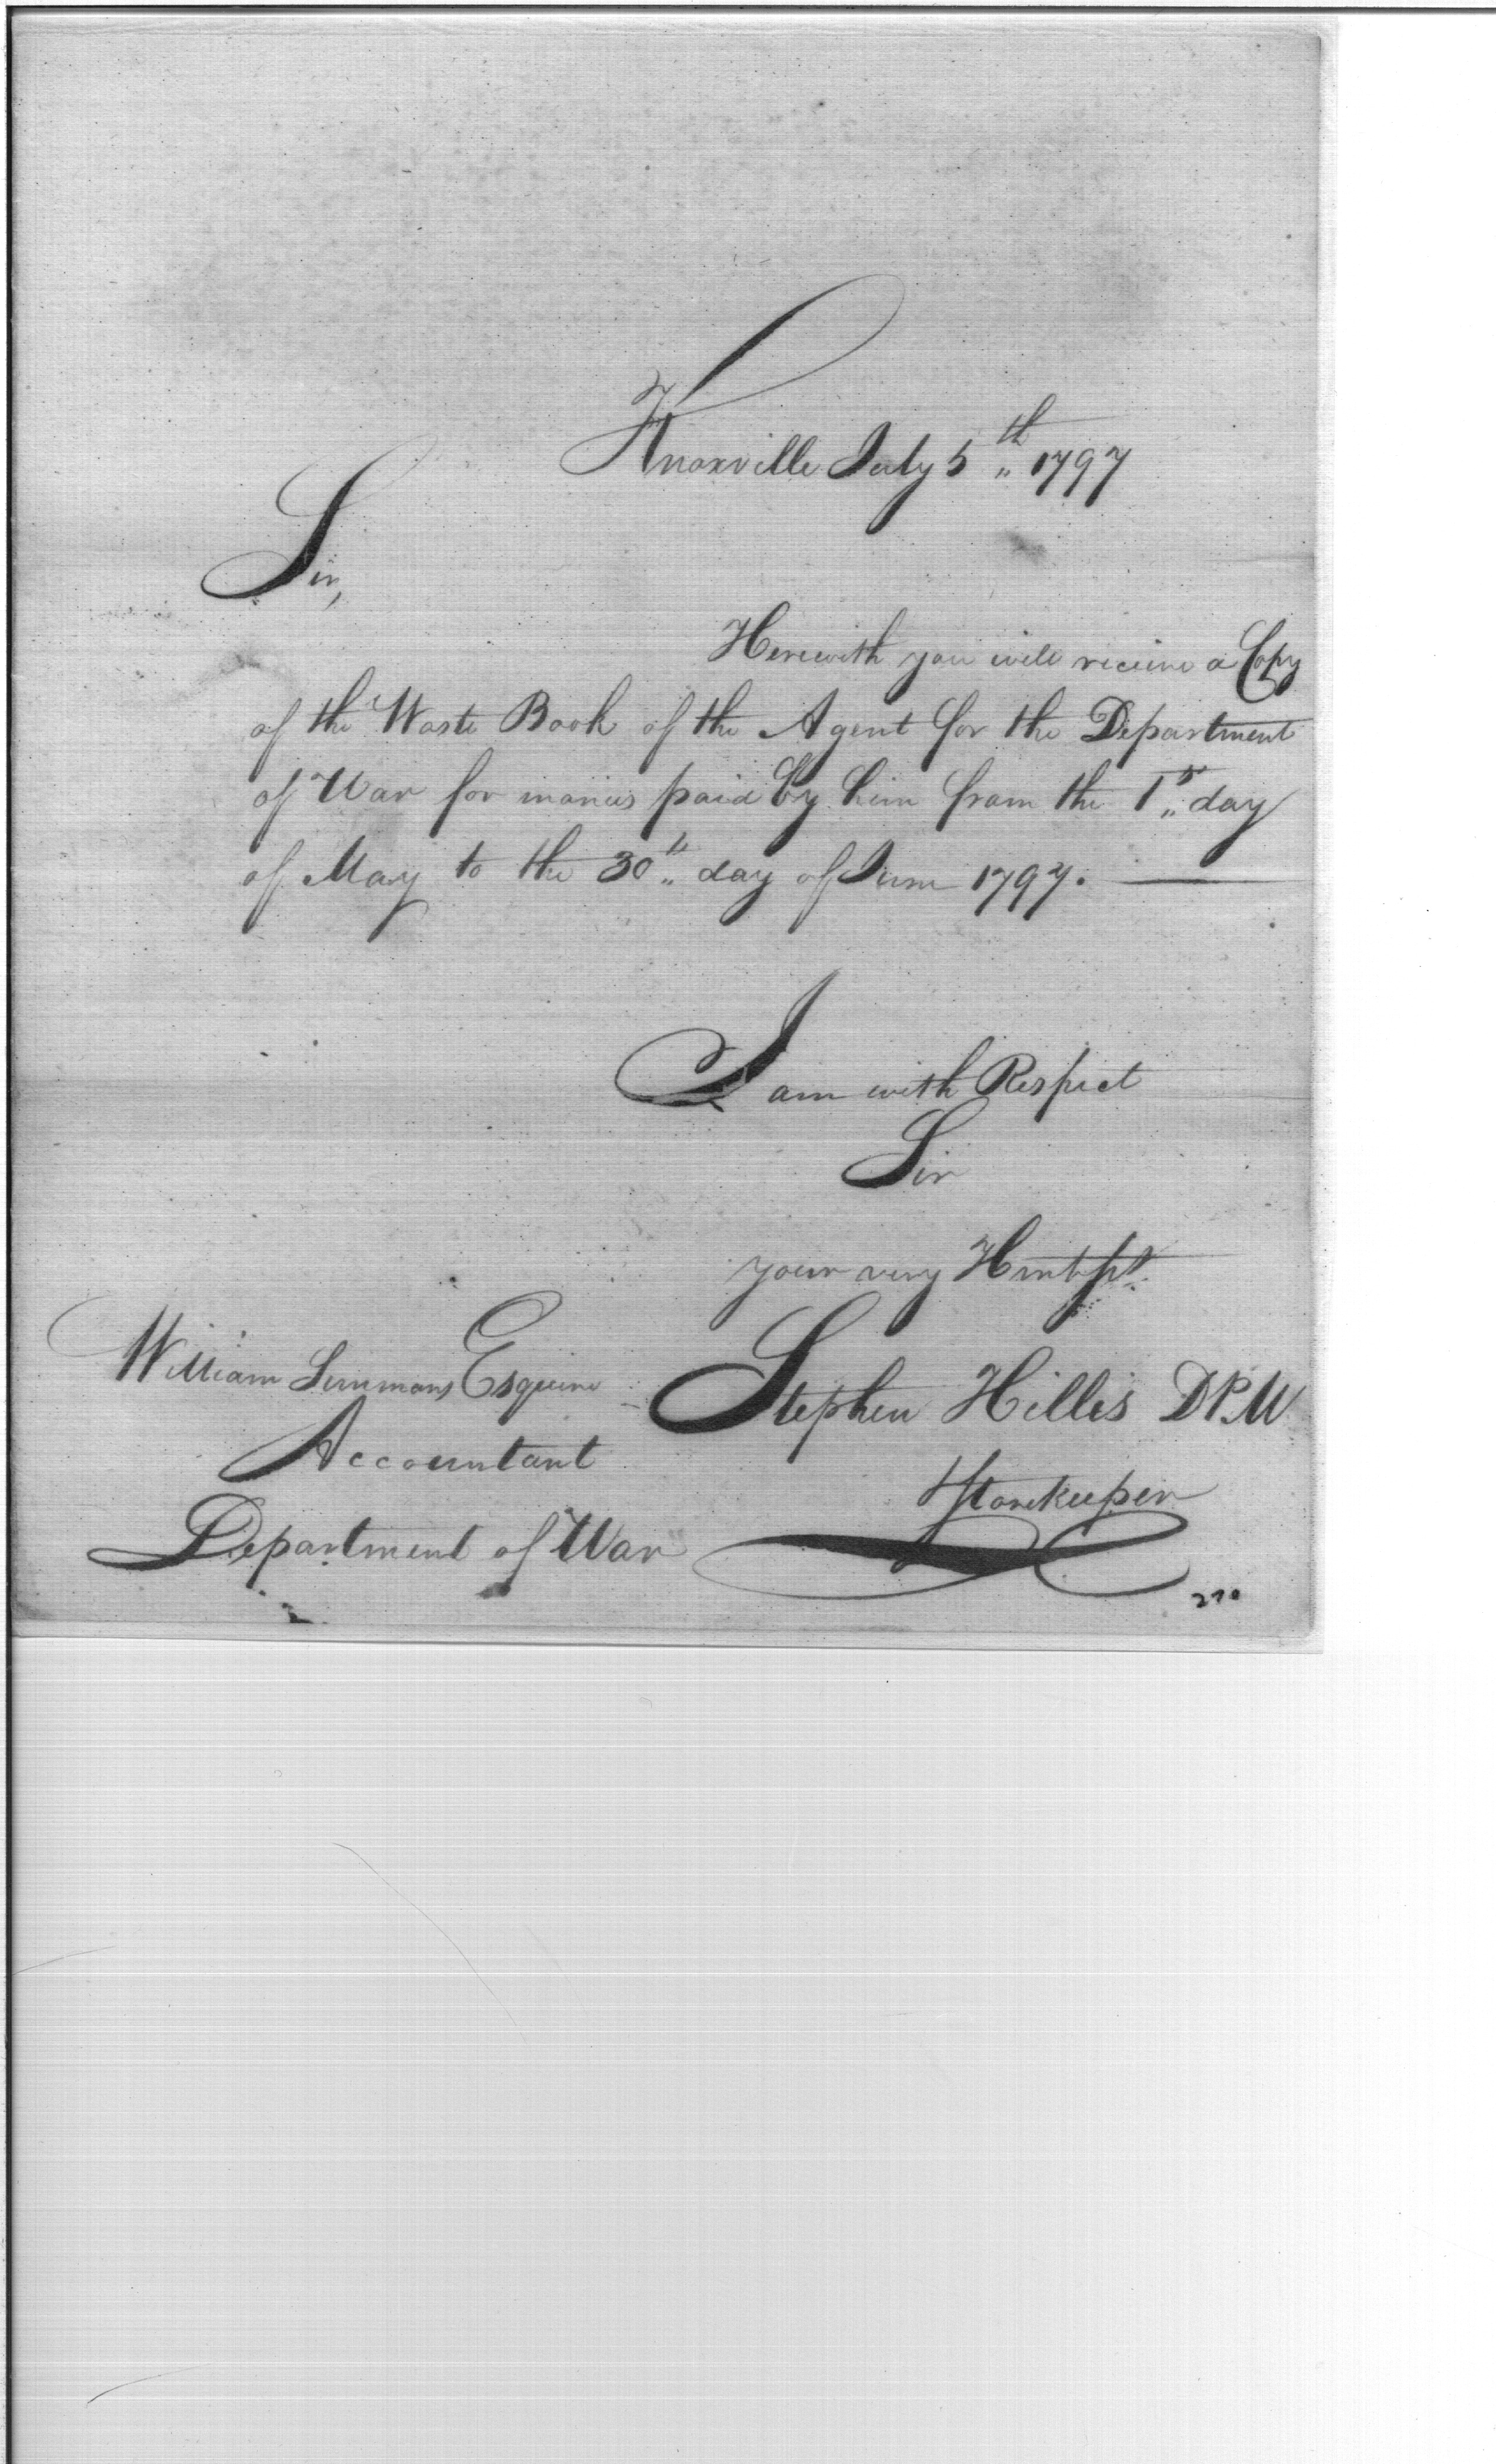 Knoxville July 5th 1797
Sir,
Herewith you will recieve a Copy
of the Waste Book of the Agent for the Department
of War for monies paid by him from the 1st day
of May to the 30th day of June 1797.
I am with Respect
Sir
your very Hmble St
William Simmons Esquire
Accountant
Department of War
Stephen Hillis D.P.W
Storekeeper
270